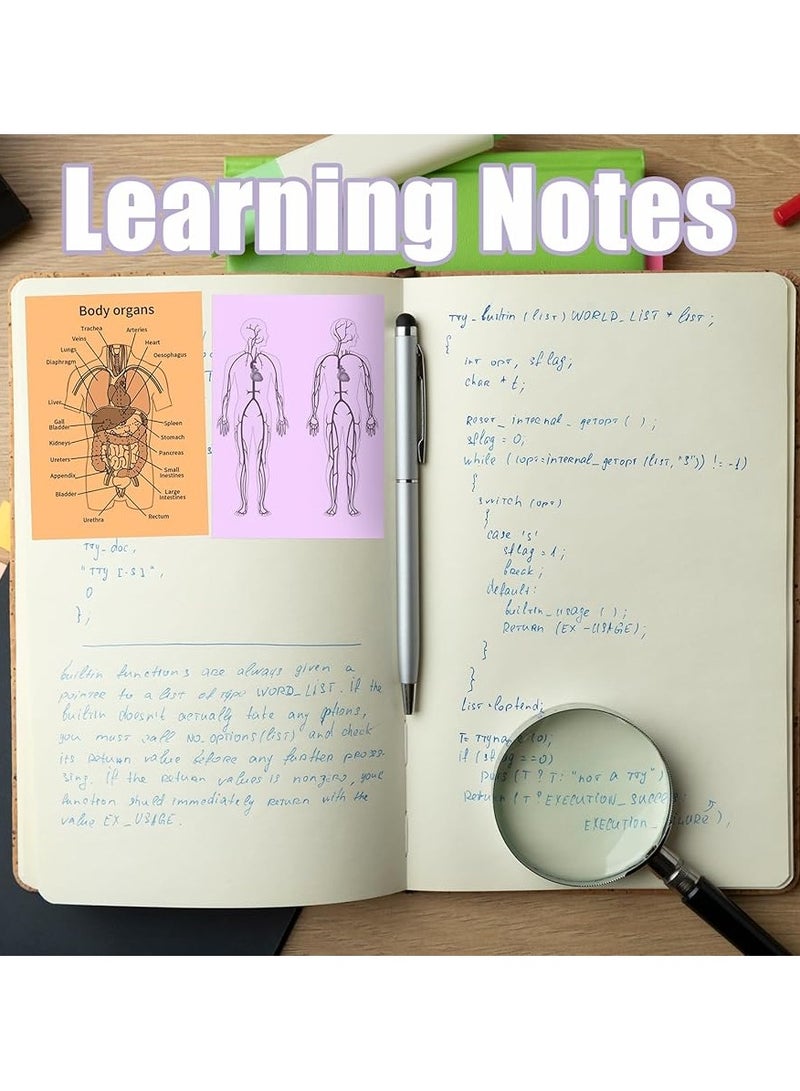 Learning Notes
Body organs
Trachea
Arteries
Veins
Heart
Lungs
Oesophagus
Diaphragm
Liver
Gall
Bladder
Spleen
Stomach
Kidneys
Pancreas
Ureters
Small
Inestines
Appendix
Large
Intestines
Bladder
Urethra
Rectum
TTy-doc,
"TTy [-S]",
0
};
builtin functions are always given a
pointer to a list of type WORD_LIST. If the
builtin doesn't actually take any options,
you must call NO_OPTIONS(LIST) and check
its return value before any further proces-
sing. If the return values is nonzero, your
function should immediately return with the
value EX_USAGE.
TTy_builtin (list) WORLD_LIST * list;
{
int opt, sflag;
char * t;
Reset_internal_getopt ( );
sflag = 0;
while ((opt=internal_getopt (list, "S")) != -1)
{
switch (opt)
{
case 's'
sflag = 1;
break;
default:
builtin_usage ( );
Return (EX-USAGE);
}
}
List = loptend;
if (sflag == 0)
puts (T ? T: "not a tty")
Return (T ? EXECUTION_SUCCE
EXECUTION_